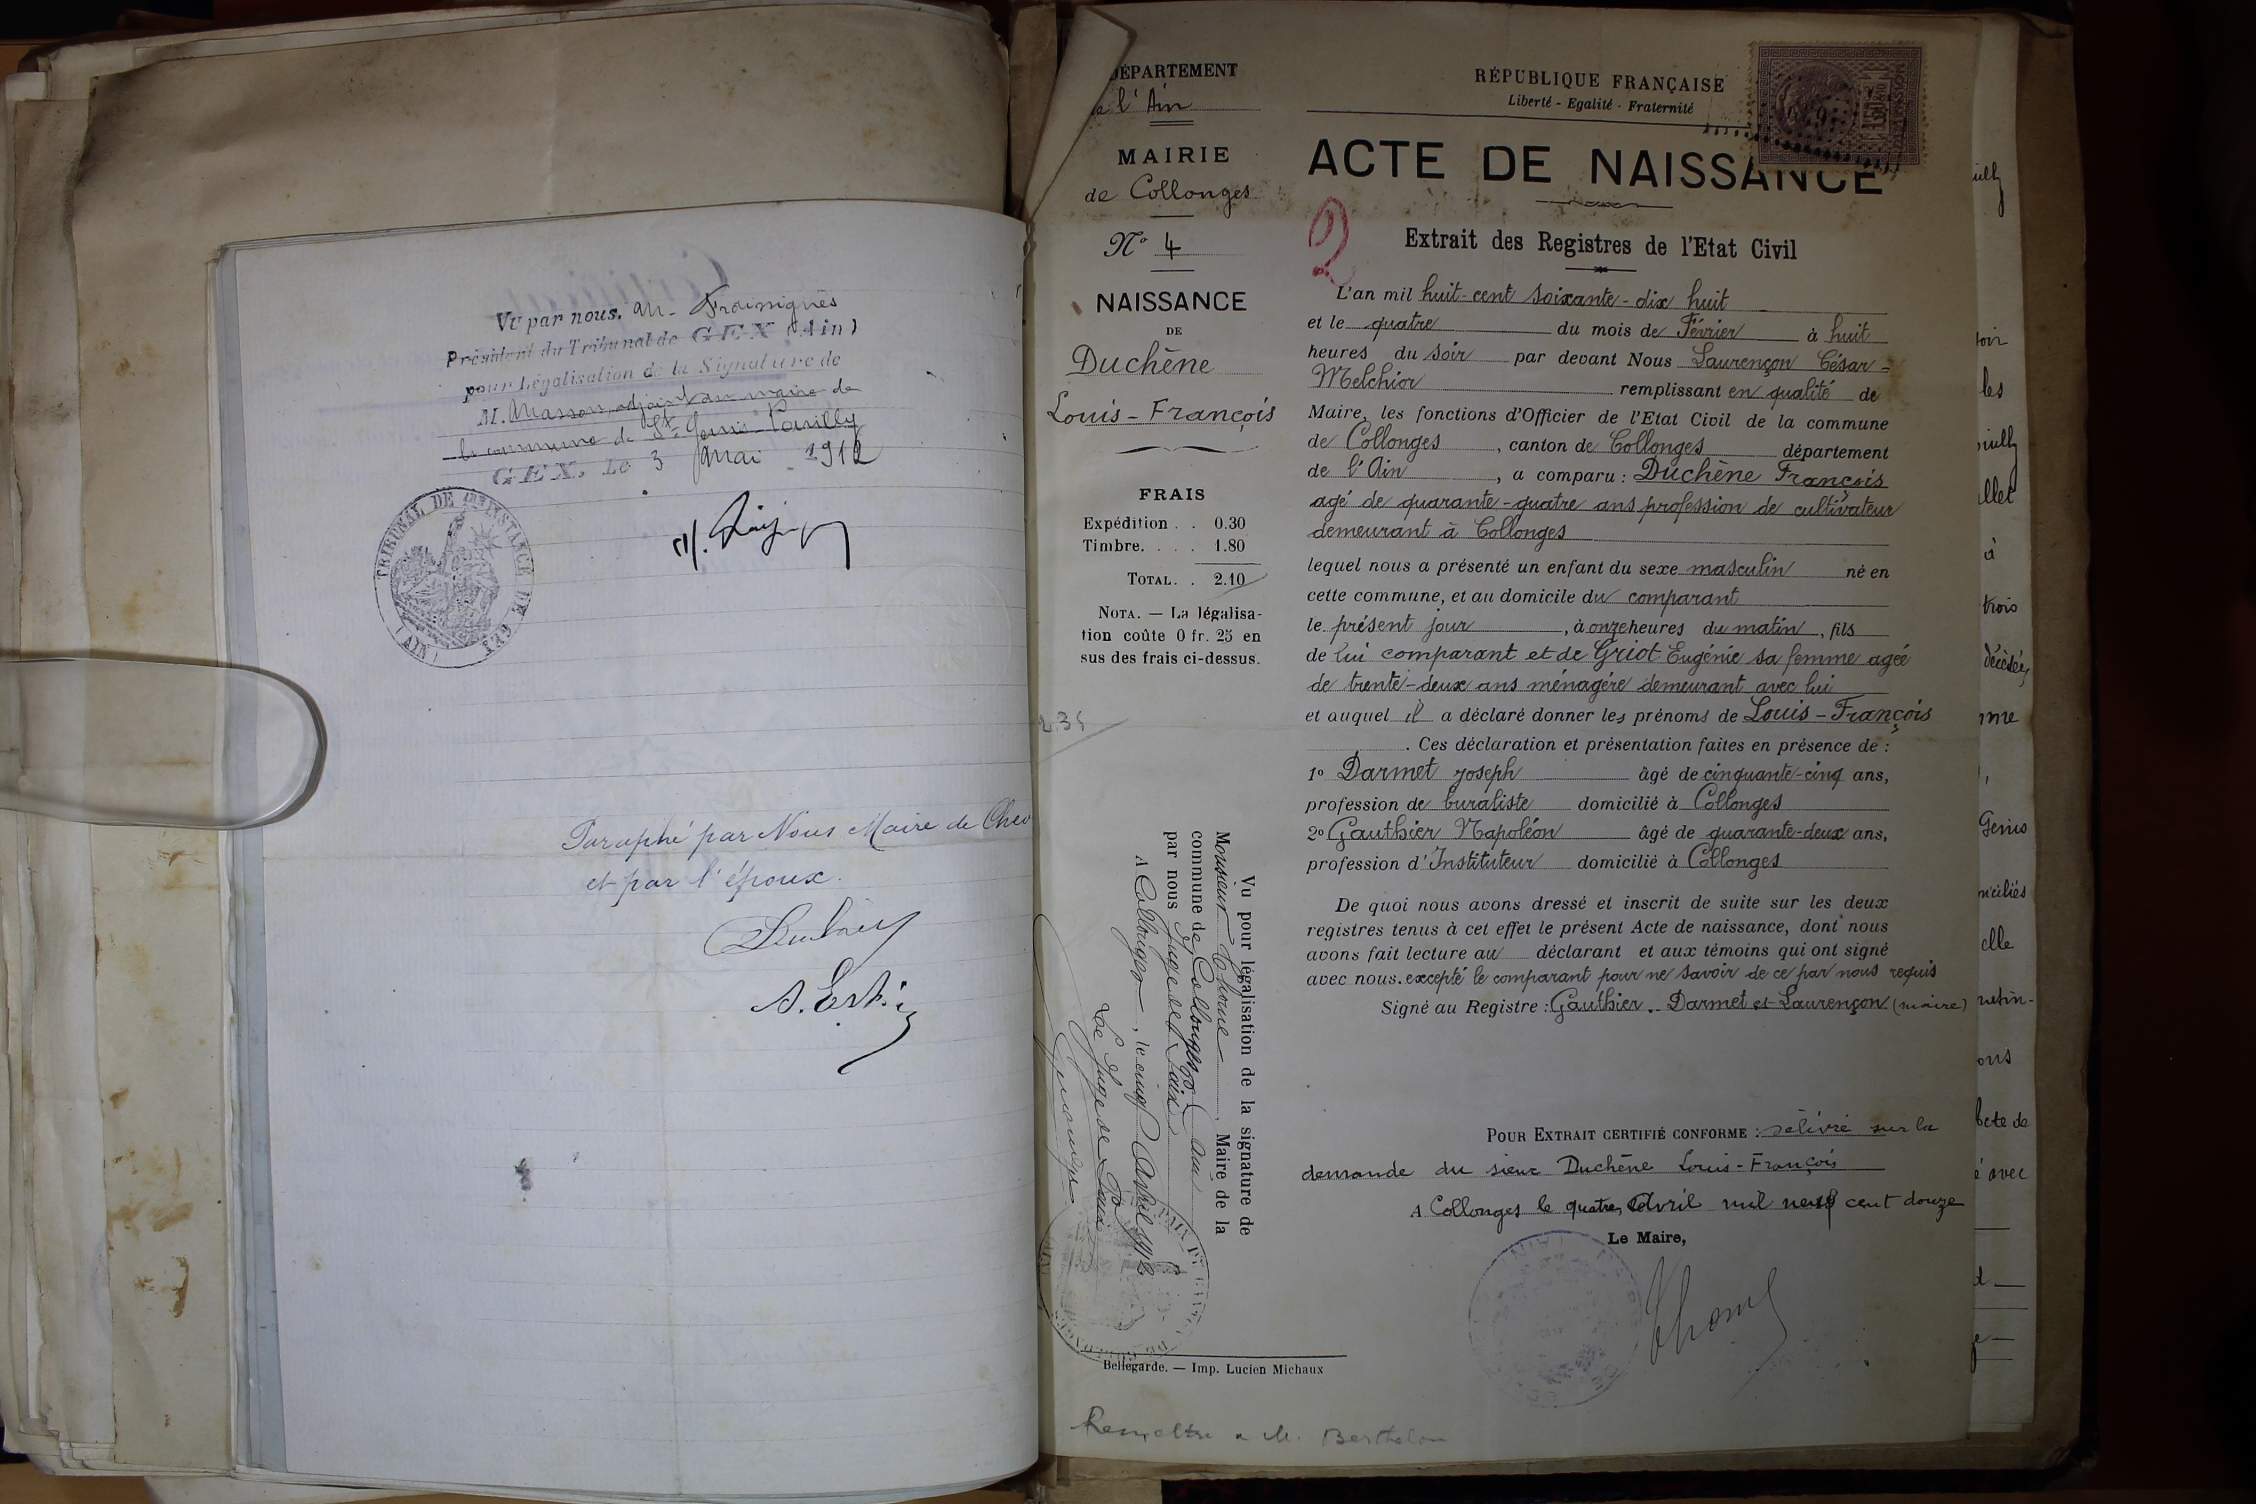 Vu par nous.
Président du Tribunal de GEX (Ain)
pour Légalisation de la Signature de
M. Masson, adjoint au maire de
la commune de St. Genis-Pouilly
GEX, le 3 mai 1912
TRIBUNAL DE 1ère INSTANCE DE GEX
(AIN)
Paraphé par Nous Maire de Chev
et par l'époux.
DÉPARTEMENT
de l'Ain
MAIRIE
de Collonges
N° 4
NAISSANCE
DE
Duchêne
Louis-François
FRAIS
Expédition . . 0.30
Timbre. . . . 1.80
TOTAL. . 2.10
NOTA. — La légalisa-
tion coûte 0 fr. 25 en
sus des frais ci-dessus.
2.35
Vu pour légalisation de la signature de
Monsieur Thome, Maire de la
commune de Collonges (Ain)
par nous Juge de Paix
A Collonges, le cinq Avril 1912
Le Juge de Paix
Bellegarde. — Imp. Lucien Michaux
Remettre a M. Berthelon
RÉPUBLIQUE FRANÇAISE
Liberté - Egalité - Fraternité
ACTE DE NAISSANCE
2
Extrait des Registres de l'Etat Civil
L'an mil huit-cent soixante-dix huit
et le quatre du mois de Février à huit
heures du soir par devant Nous Laurençon César-
Melchior remplissant en qualité de
Maire, les fonctions d'Officier de l'Etat Civil de la commune
de Collonges, canton de Collonges département
de l'Ain, a comparu : Duchêne François
agé de quarante-quatre ans profession de cultivateur
demeurant à Collonges
lequel nous a présenté un enfant du sexe masculin né en
cette commune, et au domicile du comparant
le présent jour, à onze heures du matin, fils
de lui comparant et de Griot Eugénie sa femme agée
de trente-deux ans ménagère demeurant avec lui
et auquel il a déclaré donner les prénoms de Louis-François
. Ces déclaration et présentation faites en présence de :
1° Darmet Joseph âgé de cinquante-cinq ans,
profession de buraliste domicilié à Collonges
2° Gauthier Napoléon âgé de quarante-deux ans,
profession d'Instituteur domicilié à Collonges
De quoi nous avons dressé et inscrit de suite sur les deux
registres tenus à cet effet le présent Acte de naissance, dont nous
avons fait lecture au déclarant et aux témoins qui ont signé
avec nous. excepté le comparant pour ne savoir de ce par nous requis
Signé au Registre : Gauthier. Darmet et Laurençon (maire)
POUR EXTRAIT CERTIFIÉ CONFORME : délivré sur la
demande du sieur Duchêne Louis-François
A Collonges le quatre Avril mil neuf cent douze
Le Maire,
Thome